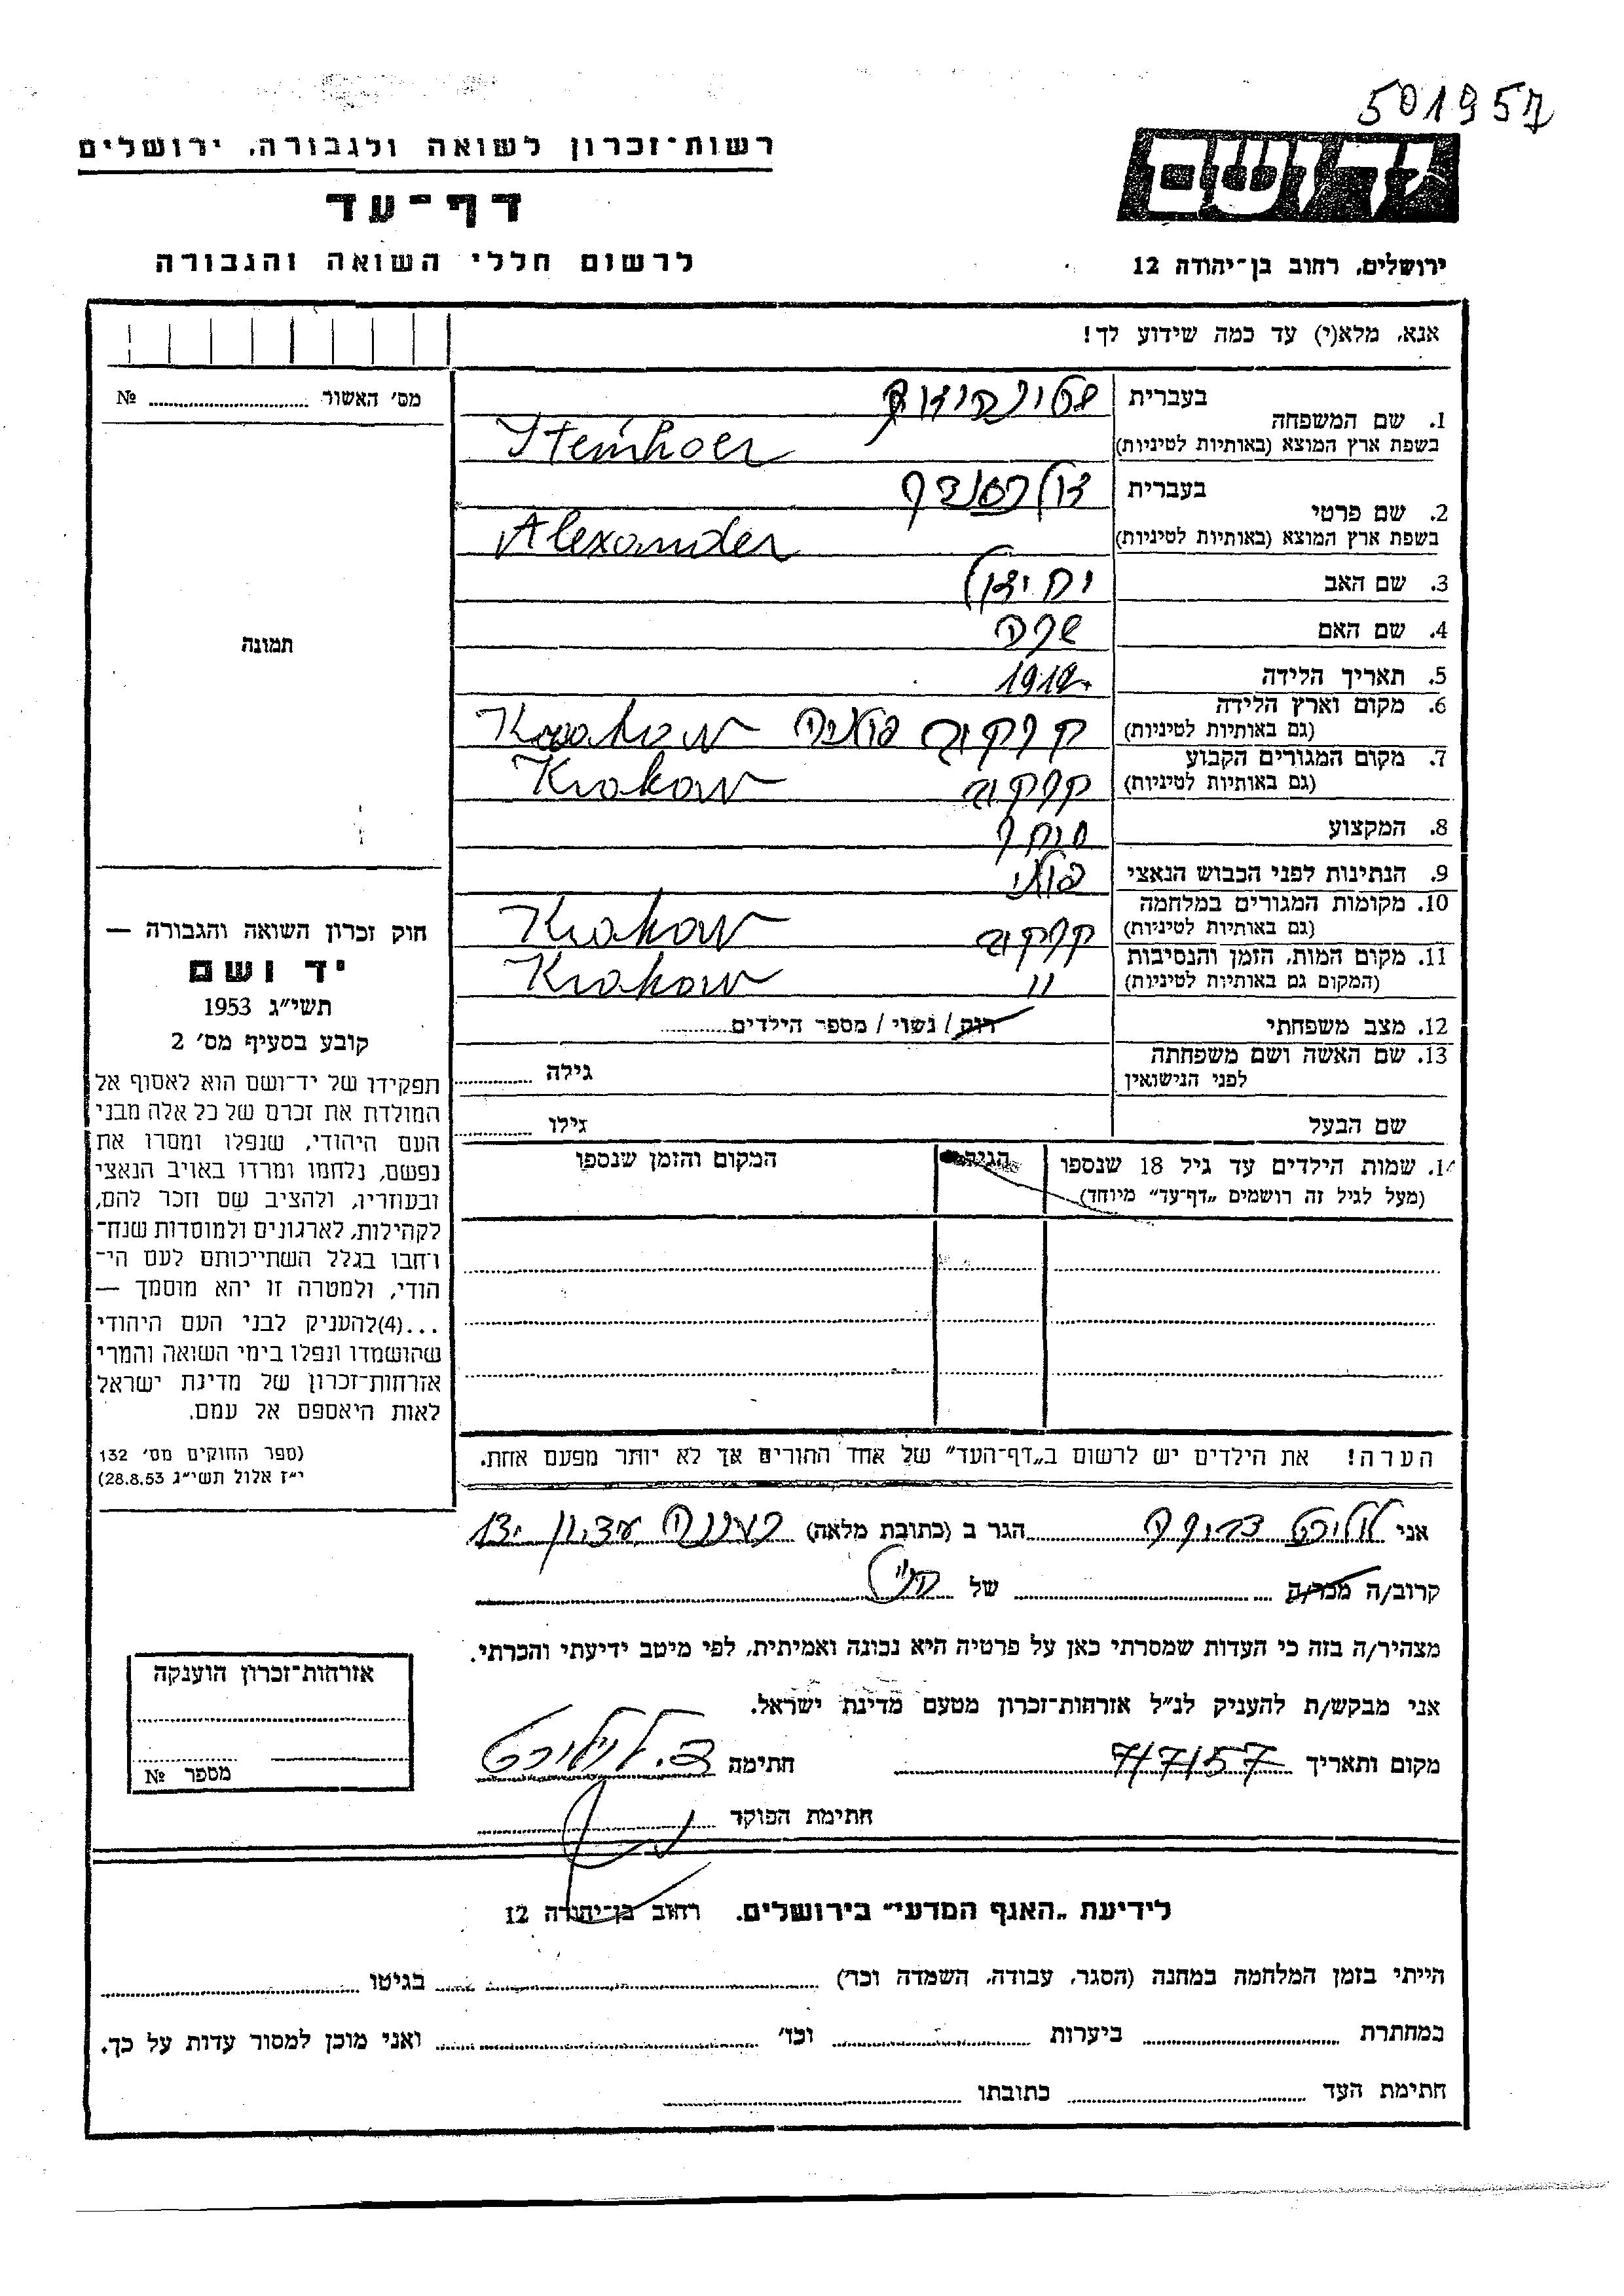 501957
ידושם
רשות־זכרון לשואה ולגבורה, ירושלים
דף־עד
לרשום חללי השואה והגבורה
ירושלים, רחוב בן־יהודה 12
אנא, מלא(י) עד כמה שידוע לך!
מס׳ האשור № ........
תמונה
1. שם המשפחה
בעברית
בשפת ארץ המוצא (באותיות לטיניות) Steinhoer
2. שם פרטי
בעברית אלכסנדר
בשפת ארץ המוצא (באותיות לטיניות) Alexander
3. שם האב יחיאל
4. שם האם שרה
5. תאריך הלידה
6. מקום וארץ הלידה (גם באותיות לטיניות) קרקוב פולניה Krakow
7. מקום המגורים הקבוע (גם באותיות לטיניות) קרקוב Krakow
8. המקצוע סוחר
9. הנתינות לפני הכבוש הנאצי פולני
10. מקומות המגורים במלחמה (גם באותיות לטיניות) קרקוב Krakow
11. מקום המות, הזמן והנסיבות (המקום גם באותיות לטיניות) " Krakow
12. מצב משפחתי רוק / נשוי / מספר הילדים........
13. שם האשה ושם משפחתה לפני הנישואין גילה ........
שם הבעל גילו ........
14. שמות הילדים עד גיל 18 שנספו
(מעל לגיל זה רושמים „דף־עד״ מיוחד)
הגיל
המקום והזמן שנספו
הערה! את הילדים יש לרשום ב„דף־העד״ של אחד ההורים אך לא יותר מפעם אחת.
חוק זכרון השואה והגבורה —
יד ושם
תשי״ג 1953
קובע בסעיף מס׳ 2
תפקידו של יד־ושם הוא לאסוף אל
המולדת את זכרם של כל אלה מבני
העם היהודי, שנפלו ומסרו את
נפשם, נלחמו ומרדו באויב הנאצי
ובעוזריו, ולהציב שם וזכר להם,
לקהילות, לארגונים ולמוסדות שנח־
רחבו בגלל השתייכותם לעם הי־
הודי, ולמטרה זו יהא מוסמך —
...(4)להעניק לבני העם היהודי
שהושמדו ונפלו בימי השואה והמרי
אזרחות־זכרון של מדינת ישראל
לאות היאספם אל עמם.
(ספר החוקים מס׳ 132
י״ז אלול תשי״ג 28.8.53)
אני הגר ב (כתובת מלאה)
קרוב/ה מכר/ה ........ של הנ"ל
מצהיר/ה בזה כי העדות שמסרתי כאן על פרטיה היא נכונה ואמיתית, לפי מיטב ידיעתי והכרתי.
אני מבקש/ת להעניק לנ״ל אזרחות־זכרון מטעם מדינת ישראל.
מקום ותאריך 7/7/57 חתימה
חתימת הפוקד
אזרחות־זכרון הוענקה
מספר №
לידיעת „האגף המדעי״ בירושלים. רחוב בן־יהודה 12
הייתי בזמן המלחמה במחנה (הסגר, עבודה, השמדה וכד׳) ........ בגיטו ........
במחתרת ........ ביערות ........ וכד׳ ........ ואני מוכן למסור עדות על כך.
חתימת העד ........ כתובתו ........